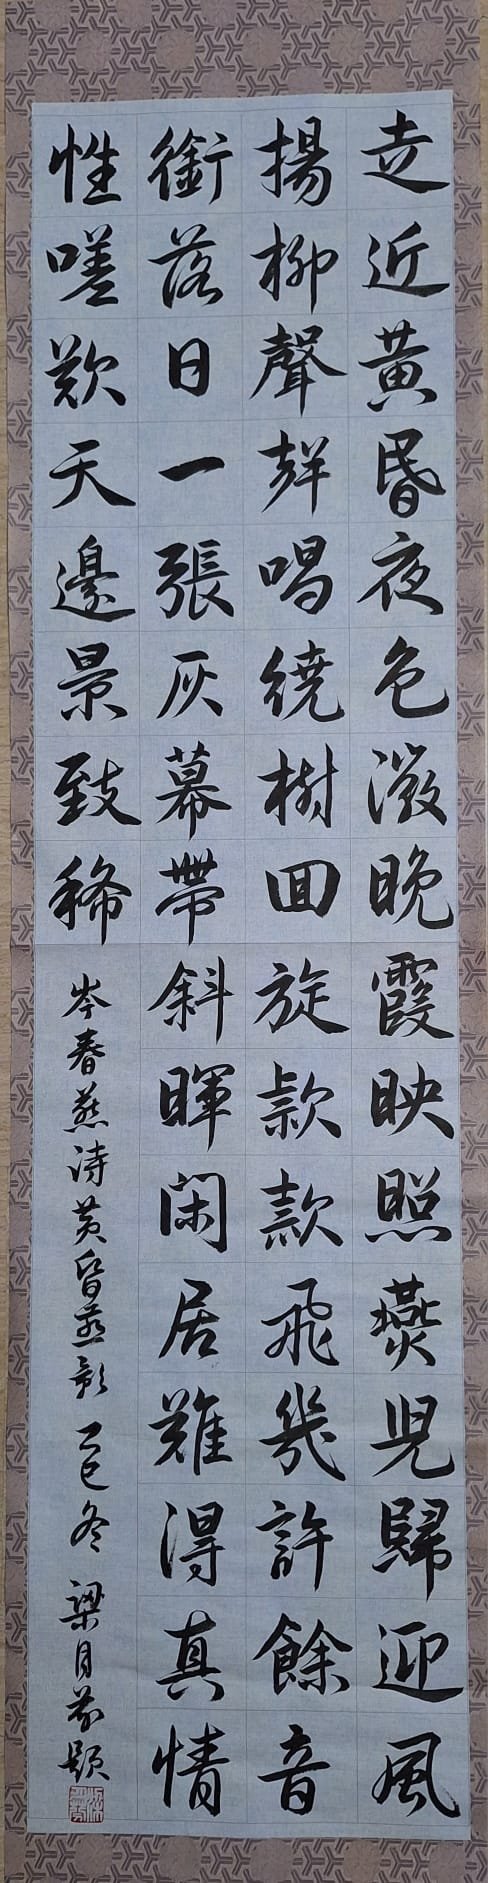 走近黃昏夜色微晚霞映照燕兒歸迎風
揚柳聲唱繞樹回旋款款飛幾許餘音
銜落日一張灰幕帶斜暉閑居難得真情
性嗟歎天邊景致稀
岑春燕詩黃昏燕影 乙巳冬 梁月芬題